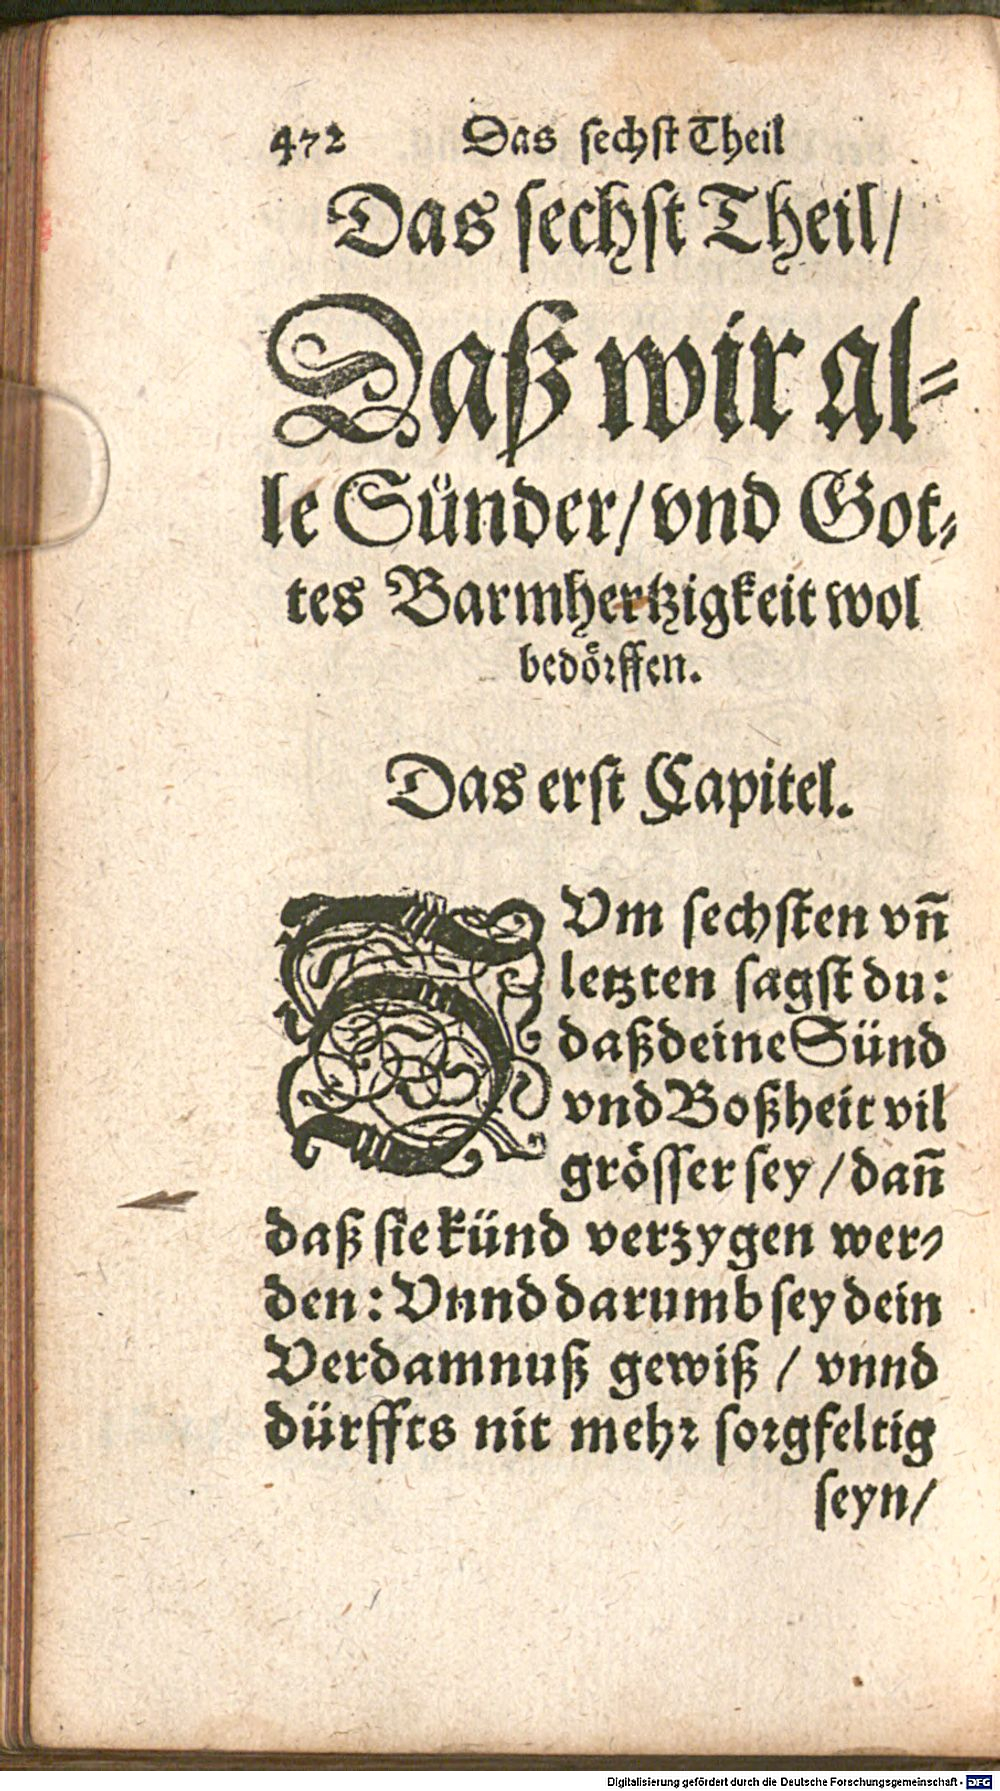 472 Das sechst Theil
Das sechst Theil/
Daß wir al-
le Sünder/ vnd Got-
tes Barmhertzigkeit wol
bedörffen.
Das erst Capitel.
ZVm sechsten vn̄
letzten sagst du:
daß deine Sünd
vnd Boßheit vil
grösser sey / dan̄
daß sie künd verzygen wer-
den: Vnnd darumb sey dein
Verdamnuß gewiß / vnnd
dürffts nit mehr sorgfeltig
seyn/
Digitalisierung gefördert durch die Deutsche Forschungsgemeinschaft - DFG